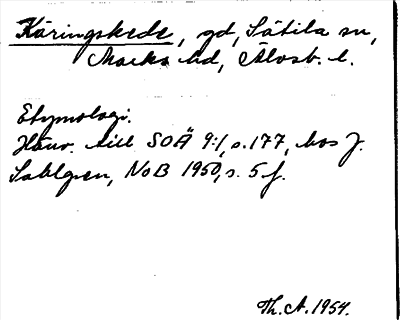 Käringskede, gd, Sätila sn,
Marks hd, Älvsb. l.
Etymologi.
Hänv. till SOÄ 9:1, s. 177, hos J.
Sahlgren, NoB 1950, s. 5 f.
Th. A. 1954.